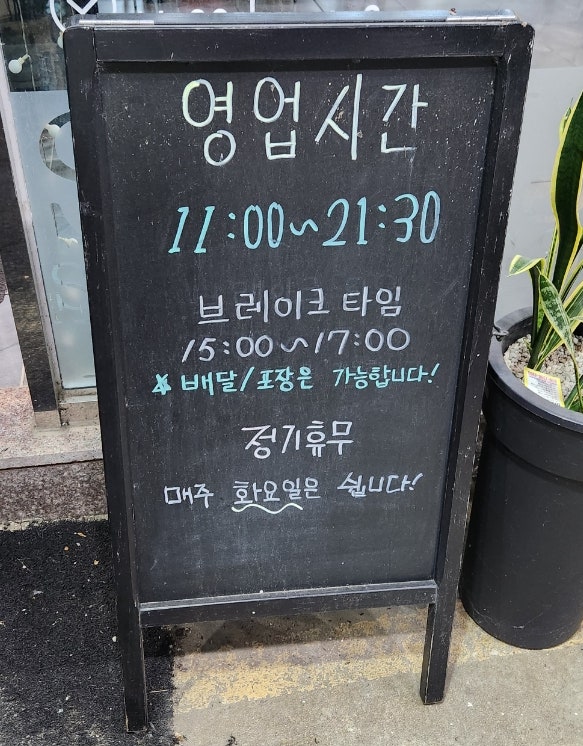 영업시간
11:00~21:30
브레이크 타임
15:00~17:00
★ 배달/포장은 가능합니다!
정기휴무
매주 화요일은 쉽니다!